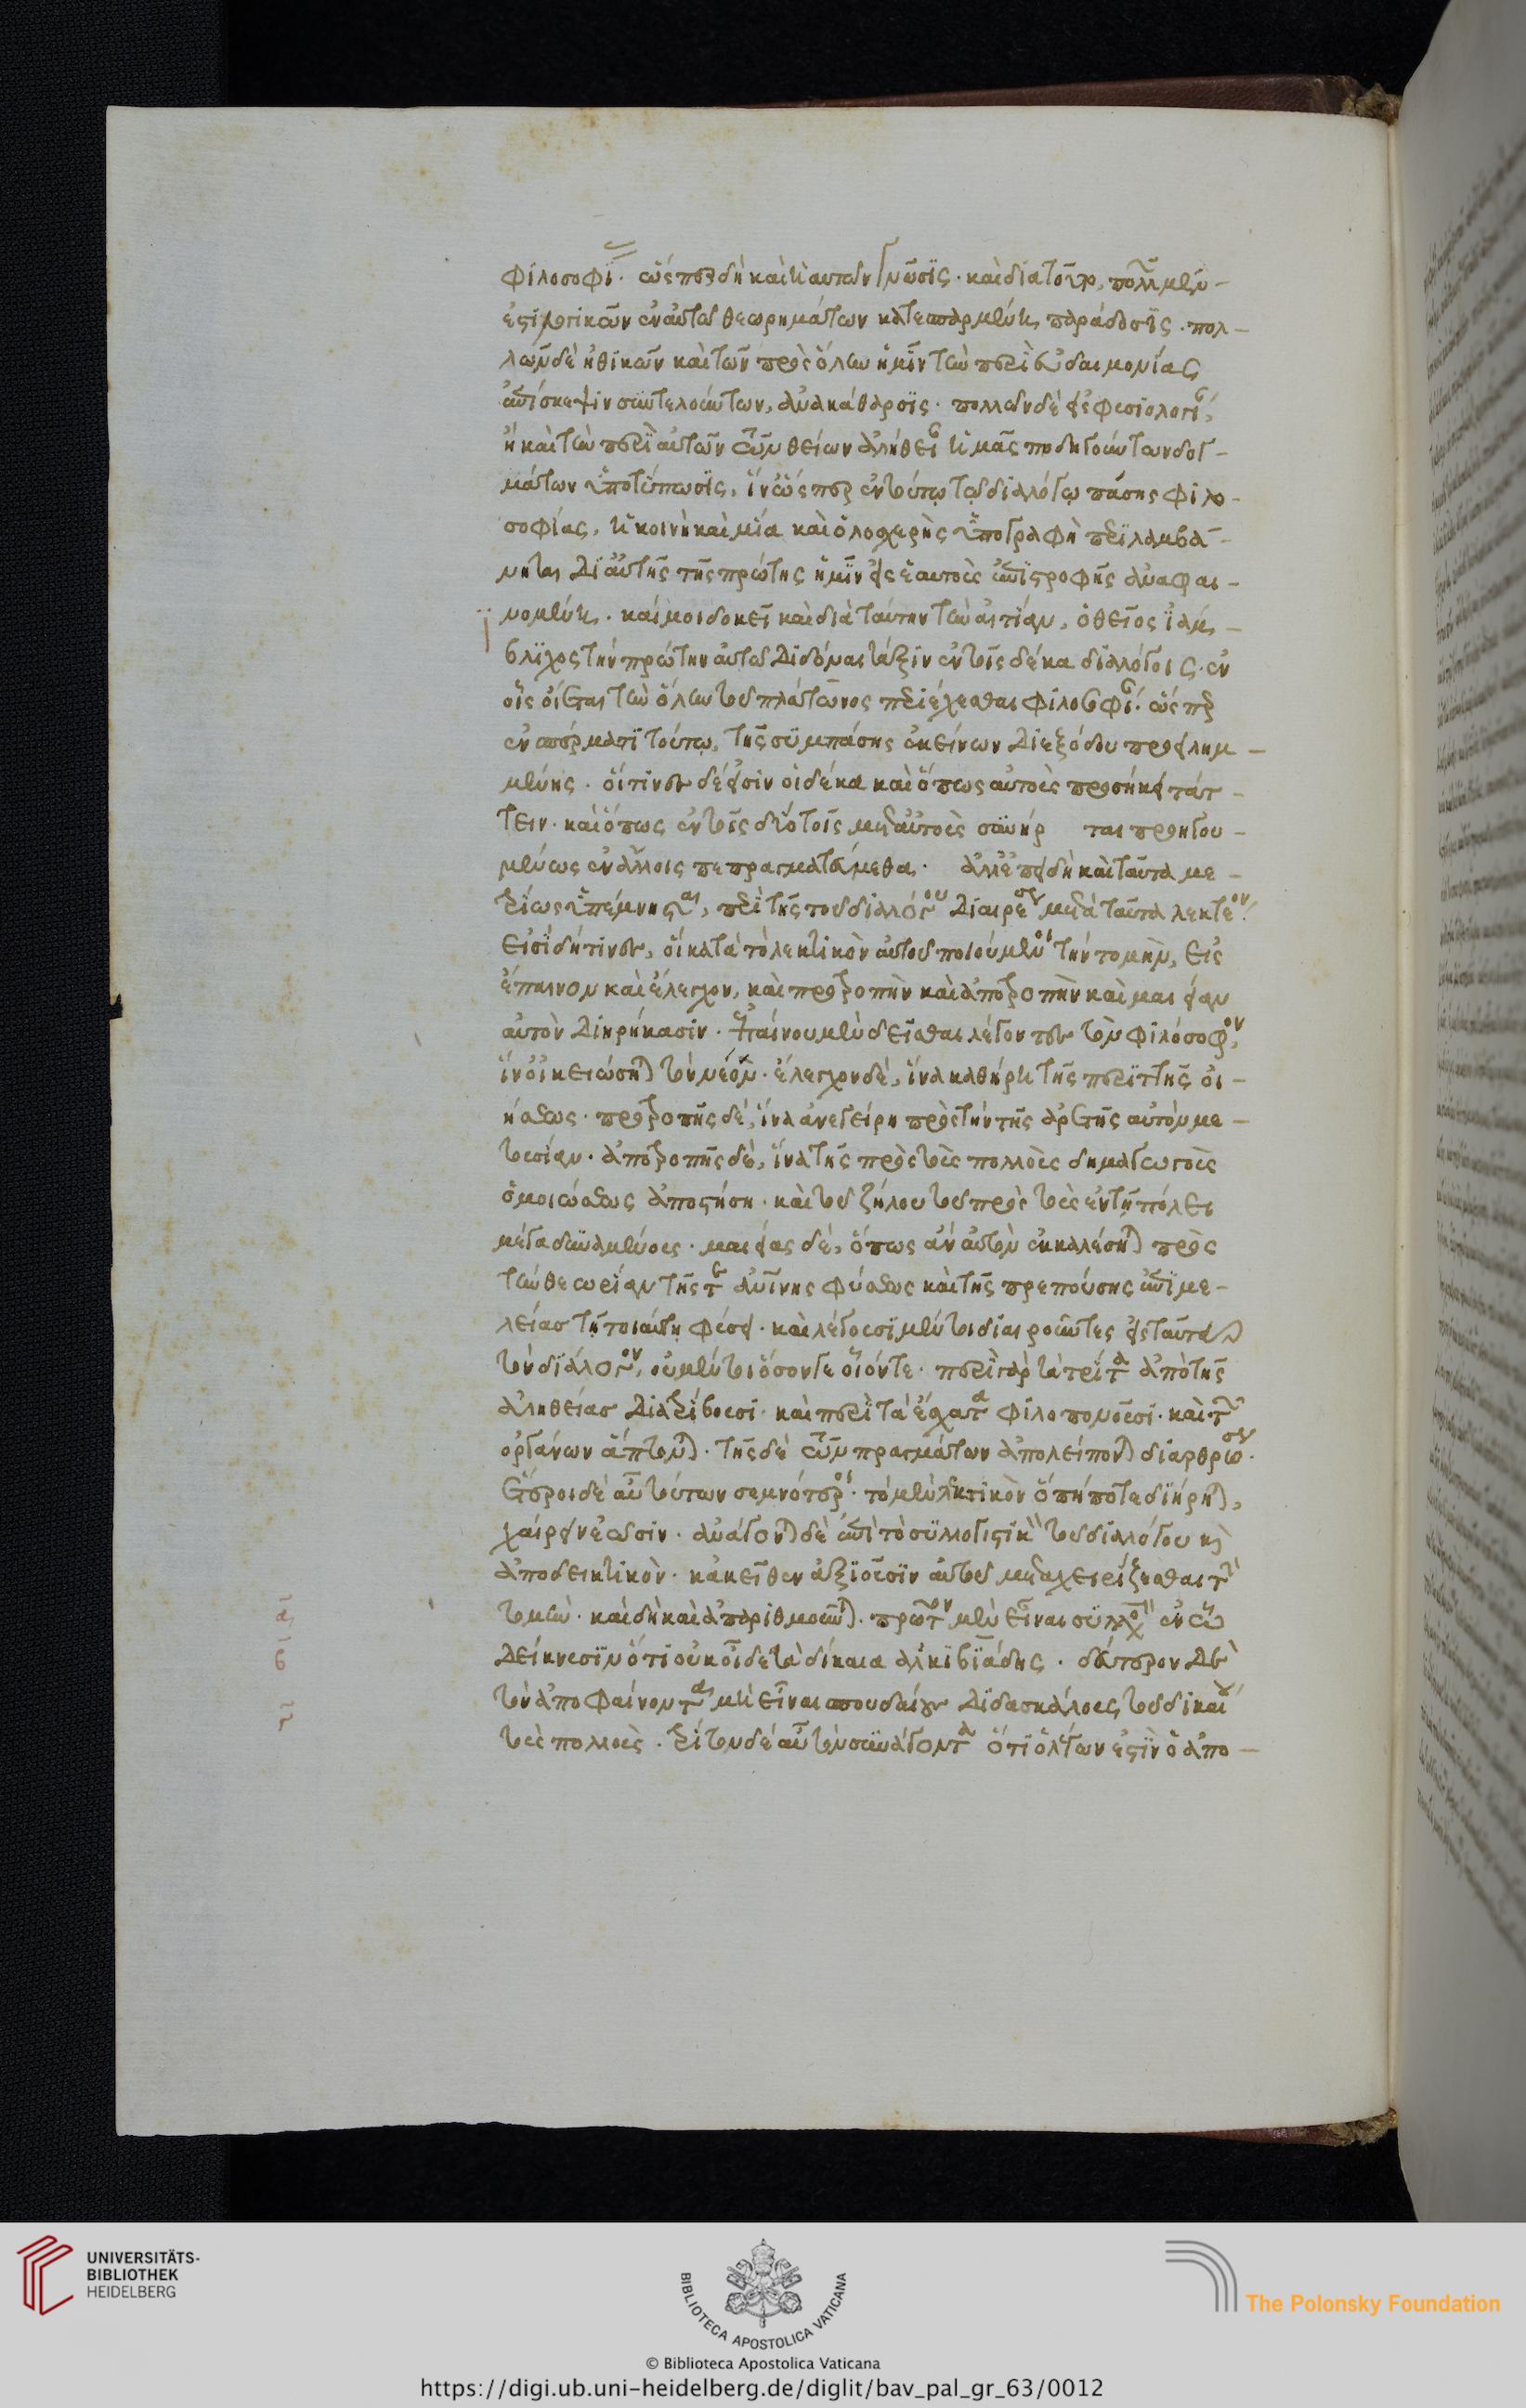 φιλοσοφί. ὥσπερ δὴ καὶ ἡ αυτῶν γνῶσις. καὶ διὰ τοῦτο, πολλῶν μὲν
ἐστι λογικῶν ἐν αὐτῶ θεωρημάτων κατεσπαρμένη παράδοσις. πολ-
λῶν δὲ ἠθικῶν καὶ τῶν πρὸς ὅλην ἡμῖν τὴν περὶ εὐδαιμονίας
ἐπίσκεψιν συντελούντων, ἀνακάθαρσις. πολλῶν δὲ εἰς φυσιολογί
ἢ καὶ τὴν περὶ αὐτῶν τῶν θείων ἀλήθει ἡμᾶς ποδηγούντων δογ-
μάτων ὑποτύπωσις, ἵν' ὥσπερ ἐν τύπῳ τῷ διαλόγῳ πάσης φιλο-
σοφίας, ἡ κοινὴ καὶ μία καὶ ὁλοσχερὴς ὑπογραφὴ περιλαμβά-
νηται δι' αὐτῆς τῆς πρώτης ἡμῖν εἰς ἑαυτοὺς ἐπιστροφῆς ἀναφαι-
νομένη. καί μοι δοκεῖ καὶ διὰ ταύτην τὴν αἰτίαν, ὁ θεῖος ἰάμ-
βλιχος τὴν πρώτην αὐτῶ διδόναι τάξιν ἐν τοῖς δέκα διαλόγοις. ἐν
οἷς οἴεται τὴν ὅλην τοῦ πλάτωνος περιέχεσθαι φιλοσοφί. ὥσπερ
ἐν σπέρματι τούτῳ, τῆς συμπάσης ἐκείνων διεξόδου προειλημ-
μένης. οἵτινες δέ εἰσιν οἱ δέκα καὶ ὅπως αὐτοὺς προσήκει τάτ-
τειν. καὶ ὅπως ἐν τοῖς δυσὶ τοῖς μετ' αὐτοὺς συνήρ ται προηγου-
μένως ἐν ἄλλοις πεπραγματεύμεθα. ἀλλ' ἐπειδὴ καὶ ταῦτα με-
τρίως ὑπέμνησται, περὶ τῆς τοῦ διαλόγου διαιρέσεως μετὰ ταῦτα λεκτέον.
εἰσὶ δή τινες, οἳ κατὰ τὸ λεκτικὸν αὐτοῦ ποιούμενοι τὴν τομὴν, εἰς
ἔπαινον καὶ ἔλεγχον, καὶ προτροπὴν καὶ ἀποτροπὴν καὶ μαιείαν
αὐτὸν διῃρήκασιν. ἐπαίνου μὲν δεῖσθαι λέγοντες τὸν φιλόσοφον,
ἵν' οἰκειώσηται τὸν νέον. ἔλεγχον δὲ, ἵνα καθήρῃ τῆς περιττῆς οἰ-
ήσεως. προτροπῆς δέ, ἵνα ἀνεγείρῃ πρὸς τὴν τῆς ἀρετῆς αὐτὸν με-
τουσίαν. ἀποτροπῆς δὲ, ἵνα τῆς πρὸς τοὺς πολλοὺς δημαγωγοὺς
ὁμοιώσεως ἀποστήσῃ. καὶ τοῦ ζήλου τοῦ πρὸς τοὺς ἐν τῇ πόλει
μέγα δυναμένους. μαιείας δέ, ὅπως ἂν αὐτὸν ἐκκαλέσηται πρὸς
τὴν θεωρίαν τῆς τε ἀνίνης φύσεως καὶ τῆς πρεπούσης ἐπιμε-
λείας τῇ τοιαύτῃ φύσει. καὶ λέγουσι μὲν τοι διαιροῦντες εἰς ταῦτα
τὸν διάλογον, οὐ μέν τοι ὅσον γε οἷόν τε. περὶ γὰρ τὰ τρίτα ἀπὸ τῆς
ἀληθείας διατρίβουσι. καὶ περὶ τὰ ἔσχατα φιλοπονοῦσι. καὶ τῶν
ὀργάνων ἅπτονται. τῆς δὲ τῶν πραγμάτων ἀπολείπονται διαρθρώσεως.
ἕτεροι δὲ αὖ τούτων σεμνότεροι. τὸ μὲν λεκτικὸν ὅπῃ ποτε διῄρηται,
χαίρειν ἐῶσιν. ἀνάγονται δὲ ἐπὶ τὸ συλλογιστικὸν τοῦ διαλόγου καὶ
ἀποδεικτικὸν. κἀκεῖθεν ἀξιοῦσιν αὐτοῦ μεταχειρίζεσθαι τὴν
τομὴν. καὶ δὴ καὶ ἀπαριθμοῦνται. πρῶτον μὲν εἶναι συλλογισμὸν ἐν ᾧ
δείκνυσιν ὅτι οὐκ οἶδε τὰ δίκαια ἀλκιβιάδης. δεύτερον δὲ
τὸν ἀποφαίνοντα μὴ εἶναι σπουδαίους διδασκάλους τοῦ δικαί
τοὺς πολλοὺς. τρίτον δὲ αὖ τὸν συνάγοντα ὅτι ὁ λέγων ἐστὶν ὁ ἀπο-
UNIVERSITÄTS-
BIBLIOTHEK
HEIDELBERG
BIBLIOTECA APOSTOLICA VATICANA
The Polonsky Foundation
© Biblioteca Apostolica Vaticana
https://digi.ub.uni-heidelberg.de/diglit/bav_pal_gr_63/0012